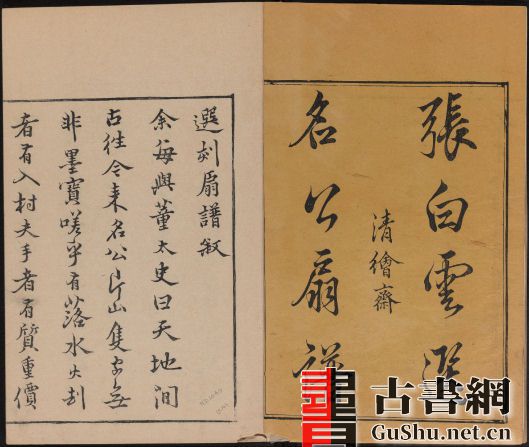 張白雲選
名公扇譜
清繪齋
選刻扇譜敘
余每與董太史曰天地間
古往今來名公片山隻字無
非墨寶嗟乎有落水火刦
者有入村夫手者有質重價
古書網
GuShu.net.cn